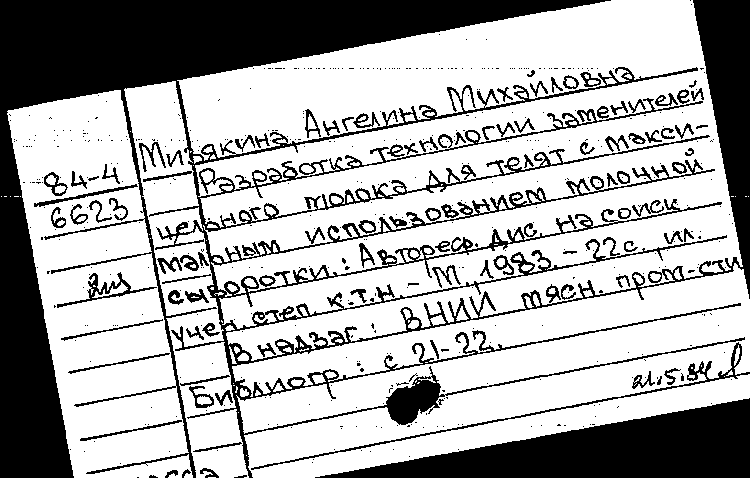 Мизякина, Ангелина Михайловна.
84-4
6623
Разработка технологии заменителей
цельного молока для телят с макси-
мальным использованием молочной
сыворотки.: Автореф. дис. на соиск.
учен. степ. к.т.н. - М., 1983. - 22 с., ил.
В надзаг.: ВНИИ мясн. пром-сти
Библиогр.: с 21-22.
21.5.84